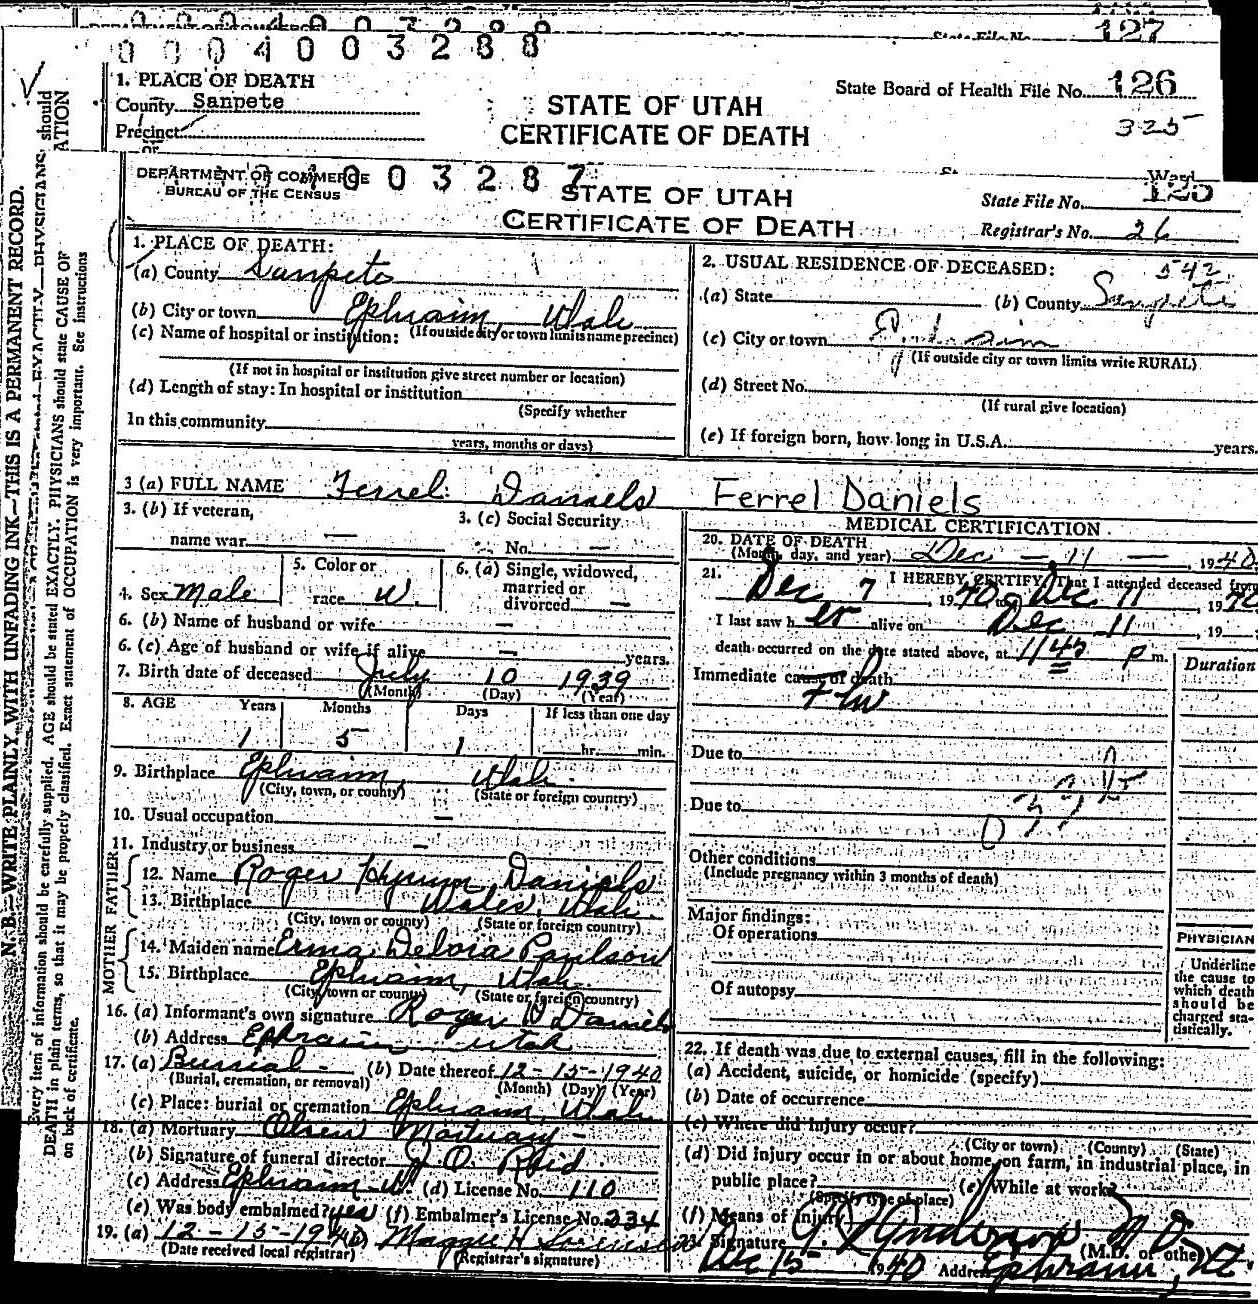 127
0 0 0 4 0 0 3 2 8 8
1. PLACE OF DEATH
County Sanpete
Precinct
or
State Board of Health File No. 126
325
STATE OF UTAH
CERTIFICATE OF DEATH
DEPARTMENT OF COMMERCE
BUREAU OF THE CENSUS
0 0 3 2 8 7
STATE OF UTAH
CERTIFICATE OF DEATH
State File No. 125
Registrar's No. 26
N. B.—WRITE PLAINLY, WITH UNFADING INK—THIS IS A PERMANENT RECORD.
Every item of information should be carefully supplied. AGE should be stated EXACTLY. PHYSICIANS should state CAUSE OF
DEATH in plain terms, so that it may be properly classified. Exact statement of OCCUPATION is very important. See instructions
on back of certificate.
1. PLACE OF DEATH:
(a) County Sanpete
(b) City or town Ephraim Utah
(If outside city or town limits name precinct)
(c) Name of hospital or institution:
(If not in hospital or institution give street number or location)
(d) Length of stay: In hospital or institution
(Specify whether
In this community
years, months or days)
2. USUAL RESIDENCE OF DECEASED: 542
(a) State (b) County Sanpete
(c) City or town Ephraim
(If outside city or town limits write RURAL)
(d) Street No.
(If rural give location)
(e) If foreign born, how long in U.S.A. years.
3 (a) FULL NAME Ferrel Daniels Ferrel Daniels
3. (b) If veteran,
name war —
3. (c) Social Security
No. —
4. Sex Male
5. Color or
race W.
6. (a) Single, widowed,
married or
divorced —
6. (b) Name of husband or wife —
6. (c) Age of husband or wife if alive — years.
7. Birth date of deceased July 10 1939
(Month) (Day) (Year)
8. AGE Years Months Days If less than one day
1 5 1 hr. min.
9. Birthplace Ephraim, Utah
(City, town, or county) (State or foreign country)
10. Usual occupation —
11. Industry or business —
FATHER
12. Name Roger Hyrum Daniels
13. Birthplace Wales, Utah
(City, town or county) (State or foreign country)
MOTHER
14. Maiden name Erma Delora Paulson
15. Birthplace Ephraim, Utah
(City, town or county) (State or foreign country)
16. (a) Informant's own signature Roger H Daniels
(b) Address Ephraim Utah
17. (a) Burrial - (b) Date thereof 12-15-1940
(Burial, cremation, or removal) (Month) (Day) (Year)
(c) Place: burial or cremation Ephraim, Utah
18. (a) Mortuary Olsen Mortuary -
(b) Signature of funeral director J. O. Reid
(c) Address Ephraim U. (d) License No. 110
(e) Was body embalmed? yes (f) Embalmer's License No. 234
19. (a) 12-15-1940 Maggie H Sorensen
(Date received local registrar) (Registrar's signature)
MEDICAL CERTIFICATION
20. DATE OF DEATH
(Month, day, and year) Dec - 11 - , 1940
21. I HEREBY CERTIFY, That I attended deceased from
Dec 7, 1940 to Dec 11, 1940
I last saw h er alive on Dec 11, 19
death occurred on the date stated above, at 1145 P m.
Immediate cause of death
Flu
Duration
Due to
Due to
Other conditions
(Include pregnancy within 3 months of death)
Major findings:
Of operations
Of autopsy
PHYSICIAN
Underline
the cause to
which death
should be
charged sta-
tistically.
22. If death was due to external causes, fill in the following:
(a) Accident, suicide, or homicide (specify)
(b) Date of occurrence
(c) Where did injury occur?
(City or town) (County) (State)
(d) Did injury occur in or about home, on farm, in industrial place, in
public place? (e) While at work?
(Specify type of place)
(f) Means of Injury
23. Signature Anderson M D
(M.D. or other)
Dec 15 1940 Address Ephraim, Ut.